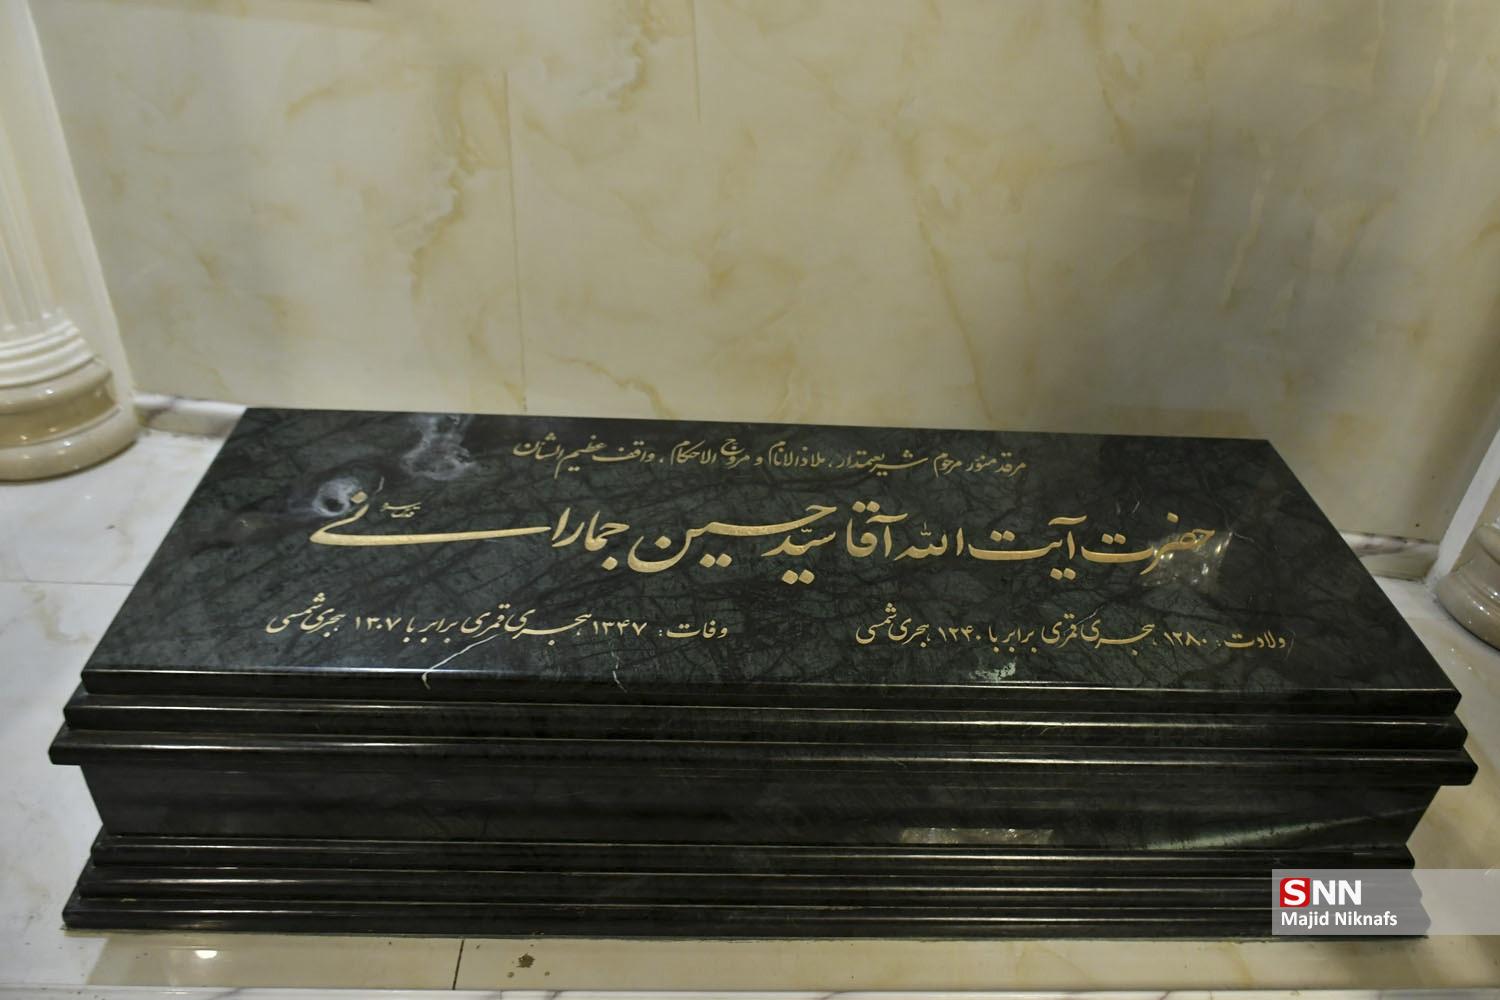 مرقد منور مرحوم شریعتمدار، ملاذ الانام و مروج الاحکام، واقف عظیم الشان
حضرت آیت الله آقا سید حسین جمارانی قدس سره
ولادت: ۱۲۸۰ هجری قمری برابر با ۱۲۴۰ هجری شمسی
وفات: ۱۳۴۷ هجری قمری برابر با ۱۳۰۷ هجری شمسی
SNN
Majid Niknafs